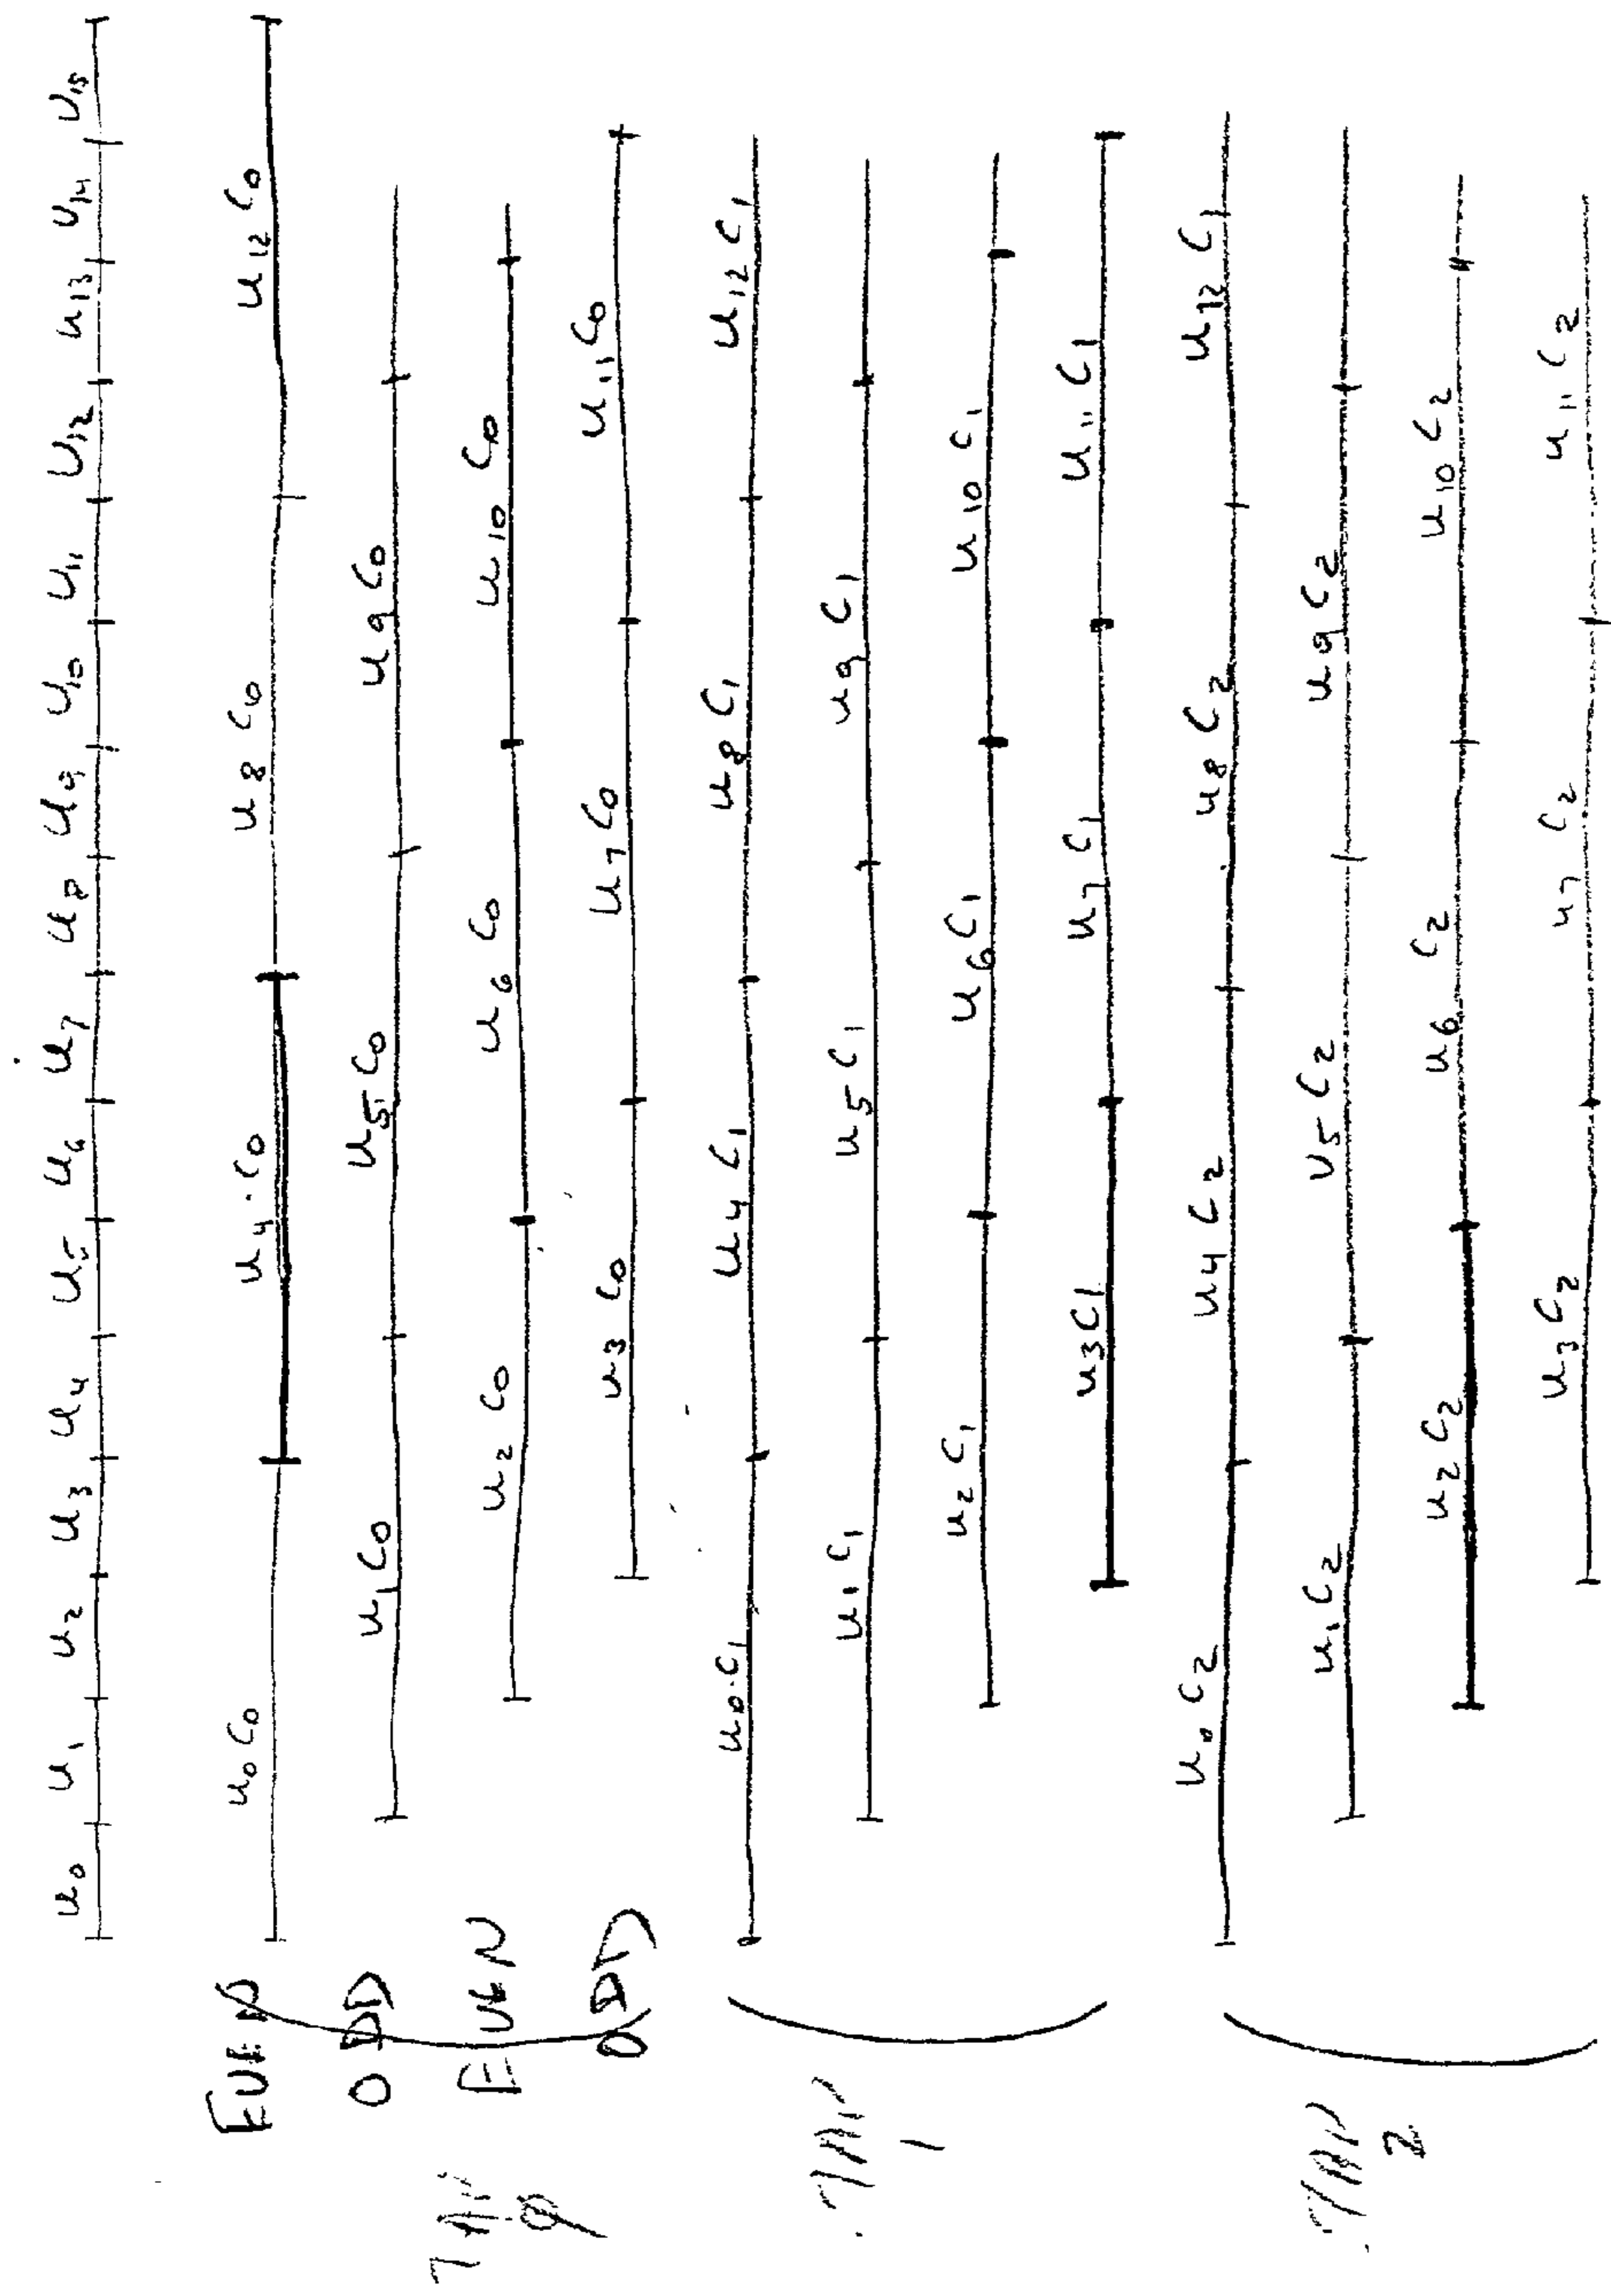 u0 u1 u2 u3 u4 u5 u6 u7 u8 u9 u10 u11 u12 u13 u14 u15
EVEN u0C0 u4·C0 u8C0 u12C0
ODD u1C0 u5C0 u9C0
EVEN u2C0 u6C0 u10C0
ODD u3C0 u7C0 u11C0
TAP 0
u0·C1 u4C1 u8C1 u12C1
u1C1 u5C1 u9C1
u2C1 u6C1 u10C1
u3C1 u7C1 u11C1
TAP 1
u0C2 u4C2 u8C2 u12C1
u1C2 u5C2 u9C2
u2C2 u6C2 u10C2
u3C2 u7C2 u11C2
TAP 2